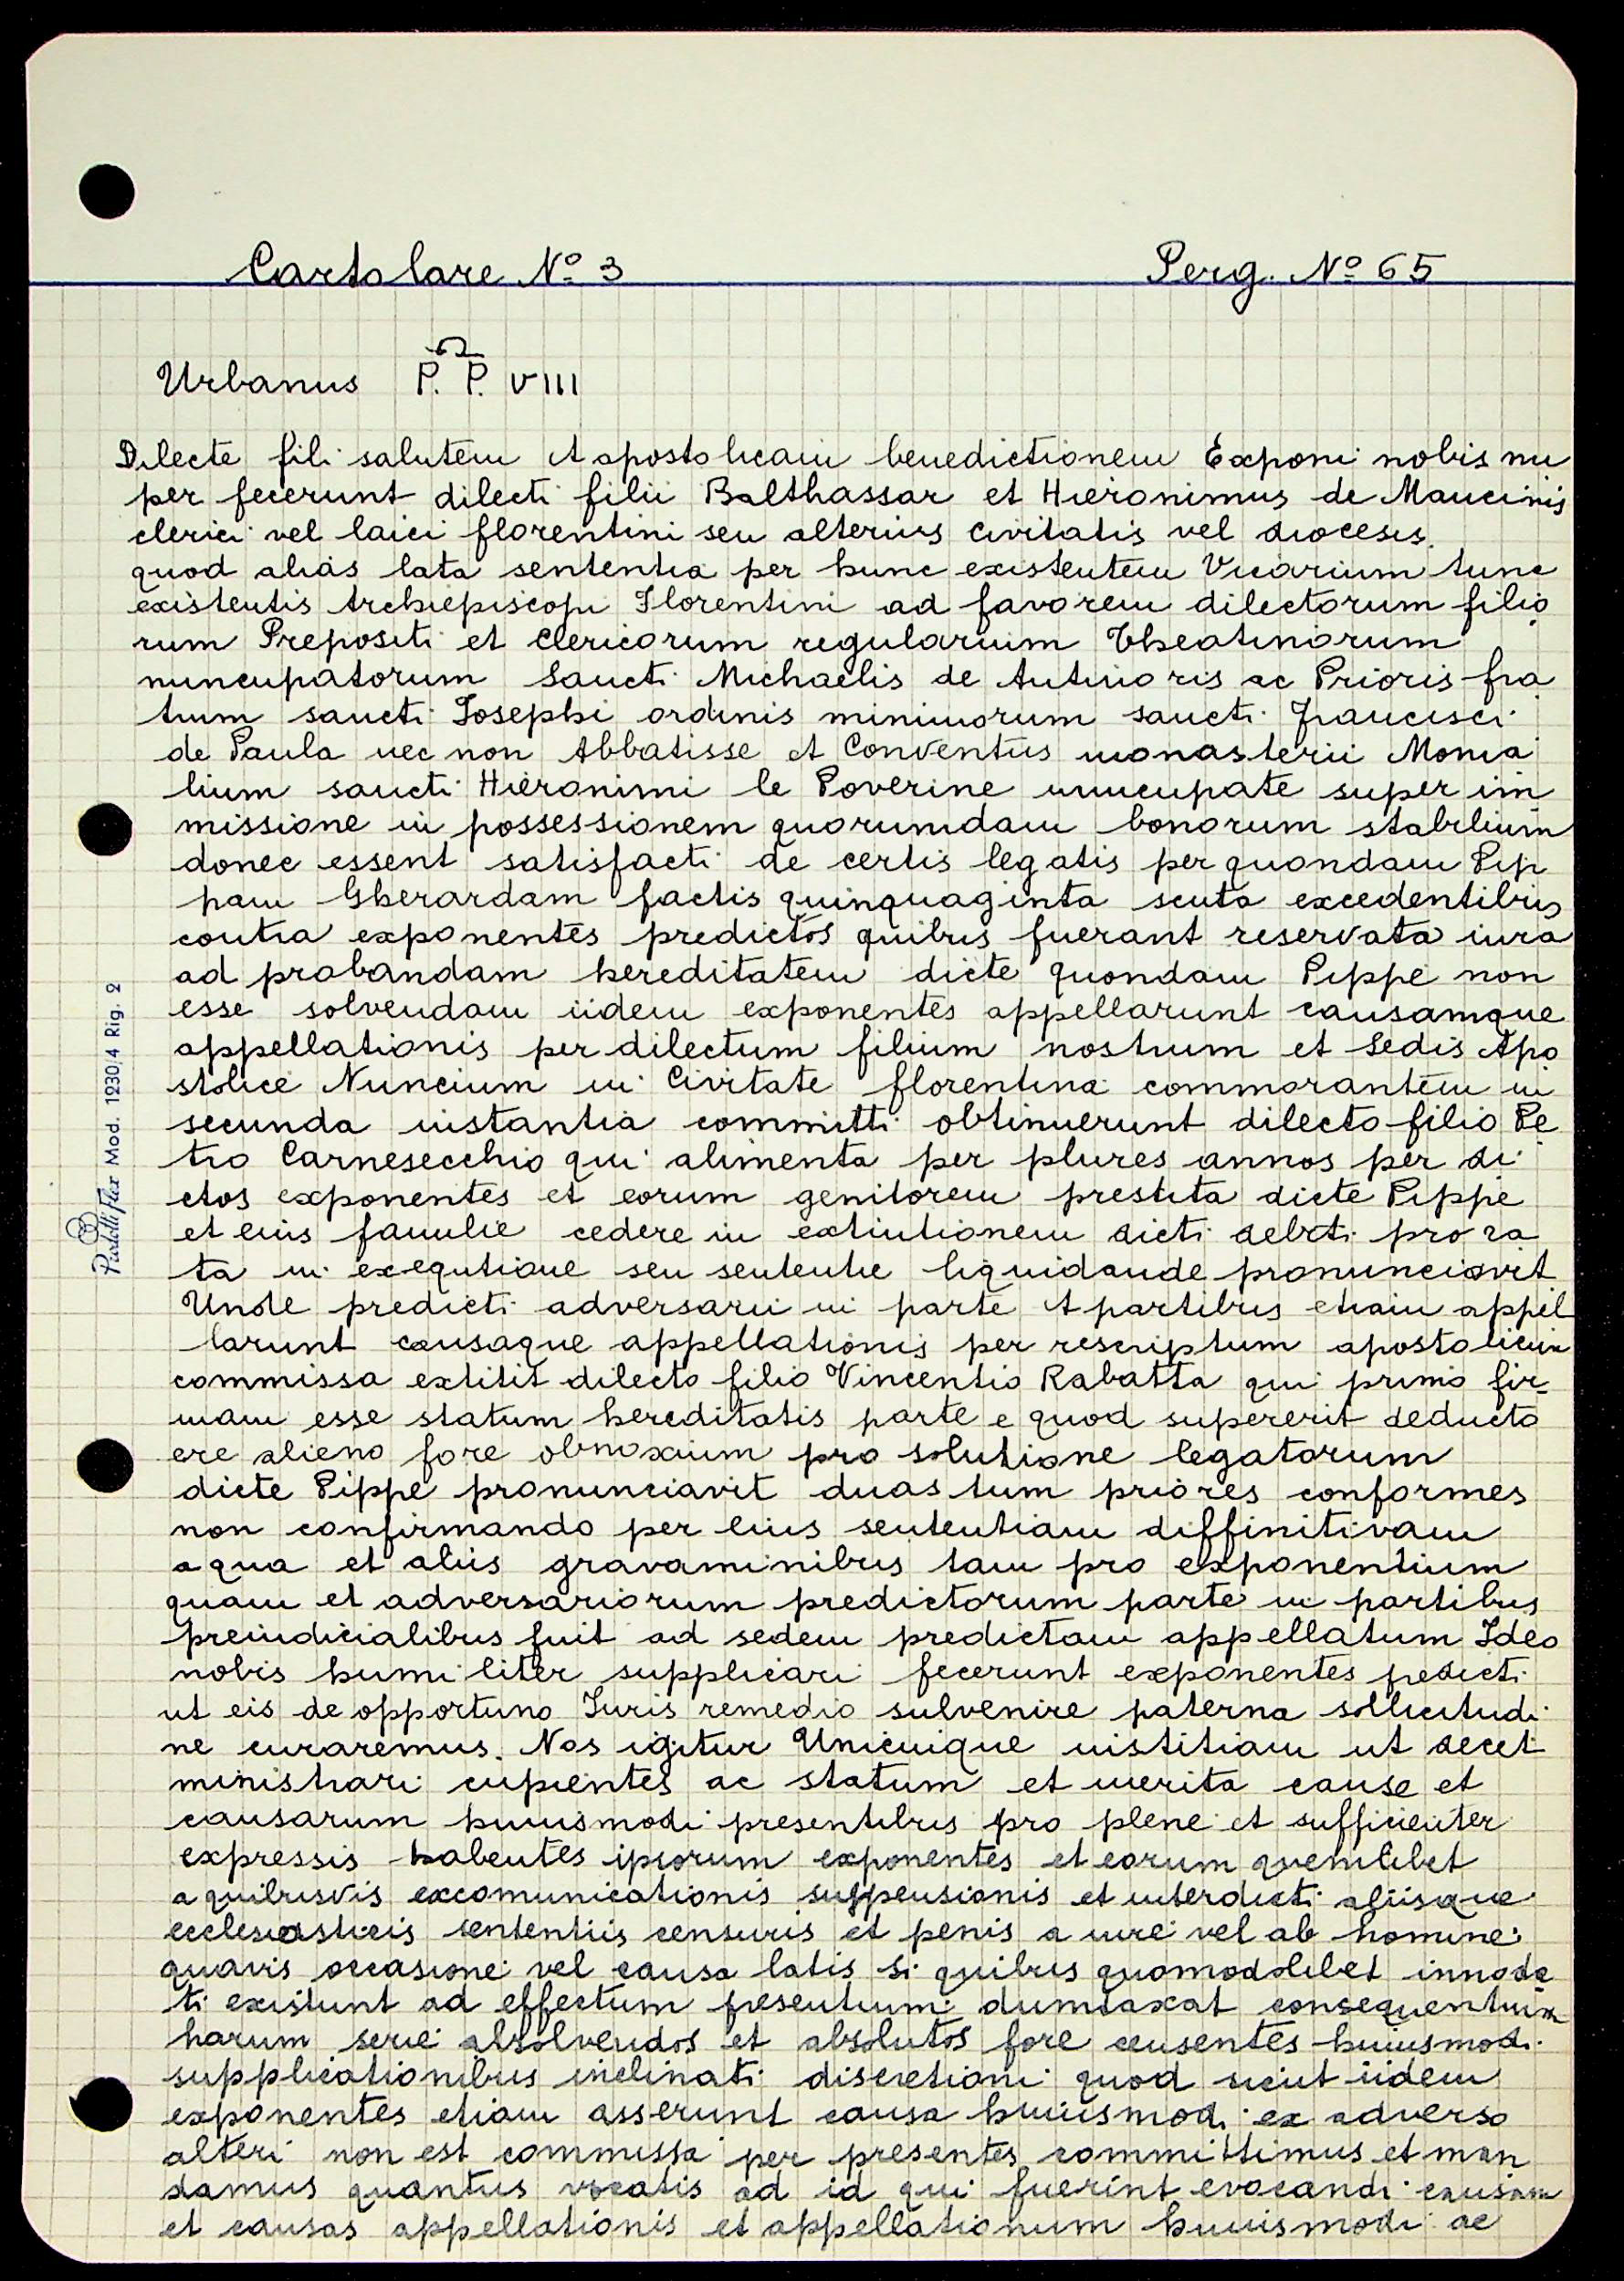 Cartolare Nº 3 Perg. Nº 65
Urbanus P. P. VIII
Dilecte fili salutem et apostolicam benedictionem Exponi nobis nu
per fecerunt dilecti filii Balthassar et Hieronimus de Mancinis
clerici vel laici florentini seu alterius civitatis vel diocesis.
quod alias lata sententia per hunc existentem Vicarium tunc
existentis Archiepiscopi Florentini ad favorem dilectorum filio
rum Prepositi et clericorum regularium Theatinorum
nuncupatorum Sancti Michaelis de Antinoris ac Prioris fra
trum sancti Iosephi ordinis minimorum sancti Francisci
de Paula nec non Abbatisse et Conventus monasterii Monia
lium sancti Hieronimi le Poverine nuncupate super im
missione in possessionem quorumdam bonorum stabilium
donec essent satisfacti de certis legatis per quondam Pip
pam Gherardam factis quinquaginta scuta excedentibus
contra exponentes predictos quibus fuerant reservata iura
ad probandam hereditatem dicte quondam Pippe non
esse solvendam iidem exponentes appellarunt causamque
appellationis per dilectum filium nostrum et Sedis Apo
stolice Nuncium in Civitate florentina commorantem in
secunda instantia committi obtinuerunt dilecto filio Pe
tro Carnesecchio qui alimenta per plures annos per di
ctos exponentes et eorum genitorem prestita dicte Pippe
et eius familie cedere in extintionem dicti debiti pro ra
ta in exequtione seu sententie liquidande pronunciavit
Unde predicti adversarii in parte et partibus etiam appel
larunt causaque appellationis per rescriptum apostolicum
commissa extitit dilecto filio Vincentio Rabatta qui primo fir-
mam esse statum hereditatis parte e quod supererit deducto
ere alieno fore obnoxium pro solutione legatorum
dicte Pippe pronunciavit duas tum priores conformes
non confirmando per eius sententiam diffinitivam
a qua et aliis gravaminibus tam pro exponentium
quam et adversariorum predictorum parte in partibus
preiudicialibus fuit ad sedem predictam appellatum Ideo
nobis humiliter supplicari fecerunt exponentes predicti
ut eis de opportuno Iuris remedio subvenire paterna sollicitudi
ne curaremus. Nos igitur Unicuique iustitiam ut decet
ministrari cupientes ac statum et merita cause et
causarum huiusmodi presentibus pro plene et sufficienter
expressis habentes ipsorum exponentes et eorum quemlibet
a quibusvis excomunicationis suspensionis et interdicti aliisque
ecclesiasticis sententiis censuris et penis a iure vel ab homine
quavis occasione vel causa latis si quibus quomodolibet innoda
ti existunt ad effectum presentium dumtaxat consequentium
harum serie absolvendos et absolutos fore censentes huiusmodi
supplicationibus inclinati discretioni quod sicut iidem
exponentes etiam asserunt causa huiusmodi ex adverso
alteri non est commissa per presentes committimus et man
damus quantus vocatis ad id qui fuerint evocandi causam
et causas appellationis et appellationum huiusmodi ac
Mod. 1230/4 Rig. 2